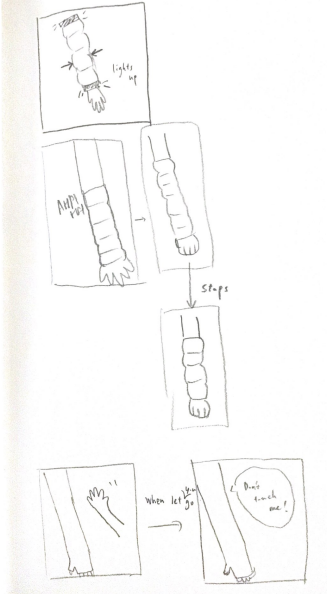 lights
up
Stops
When let you
go
Don't
touch
me!